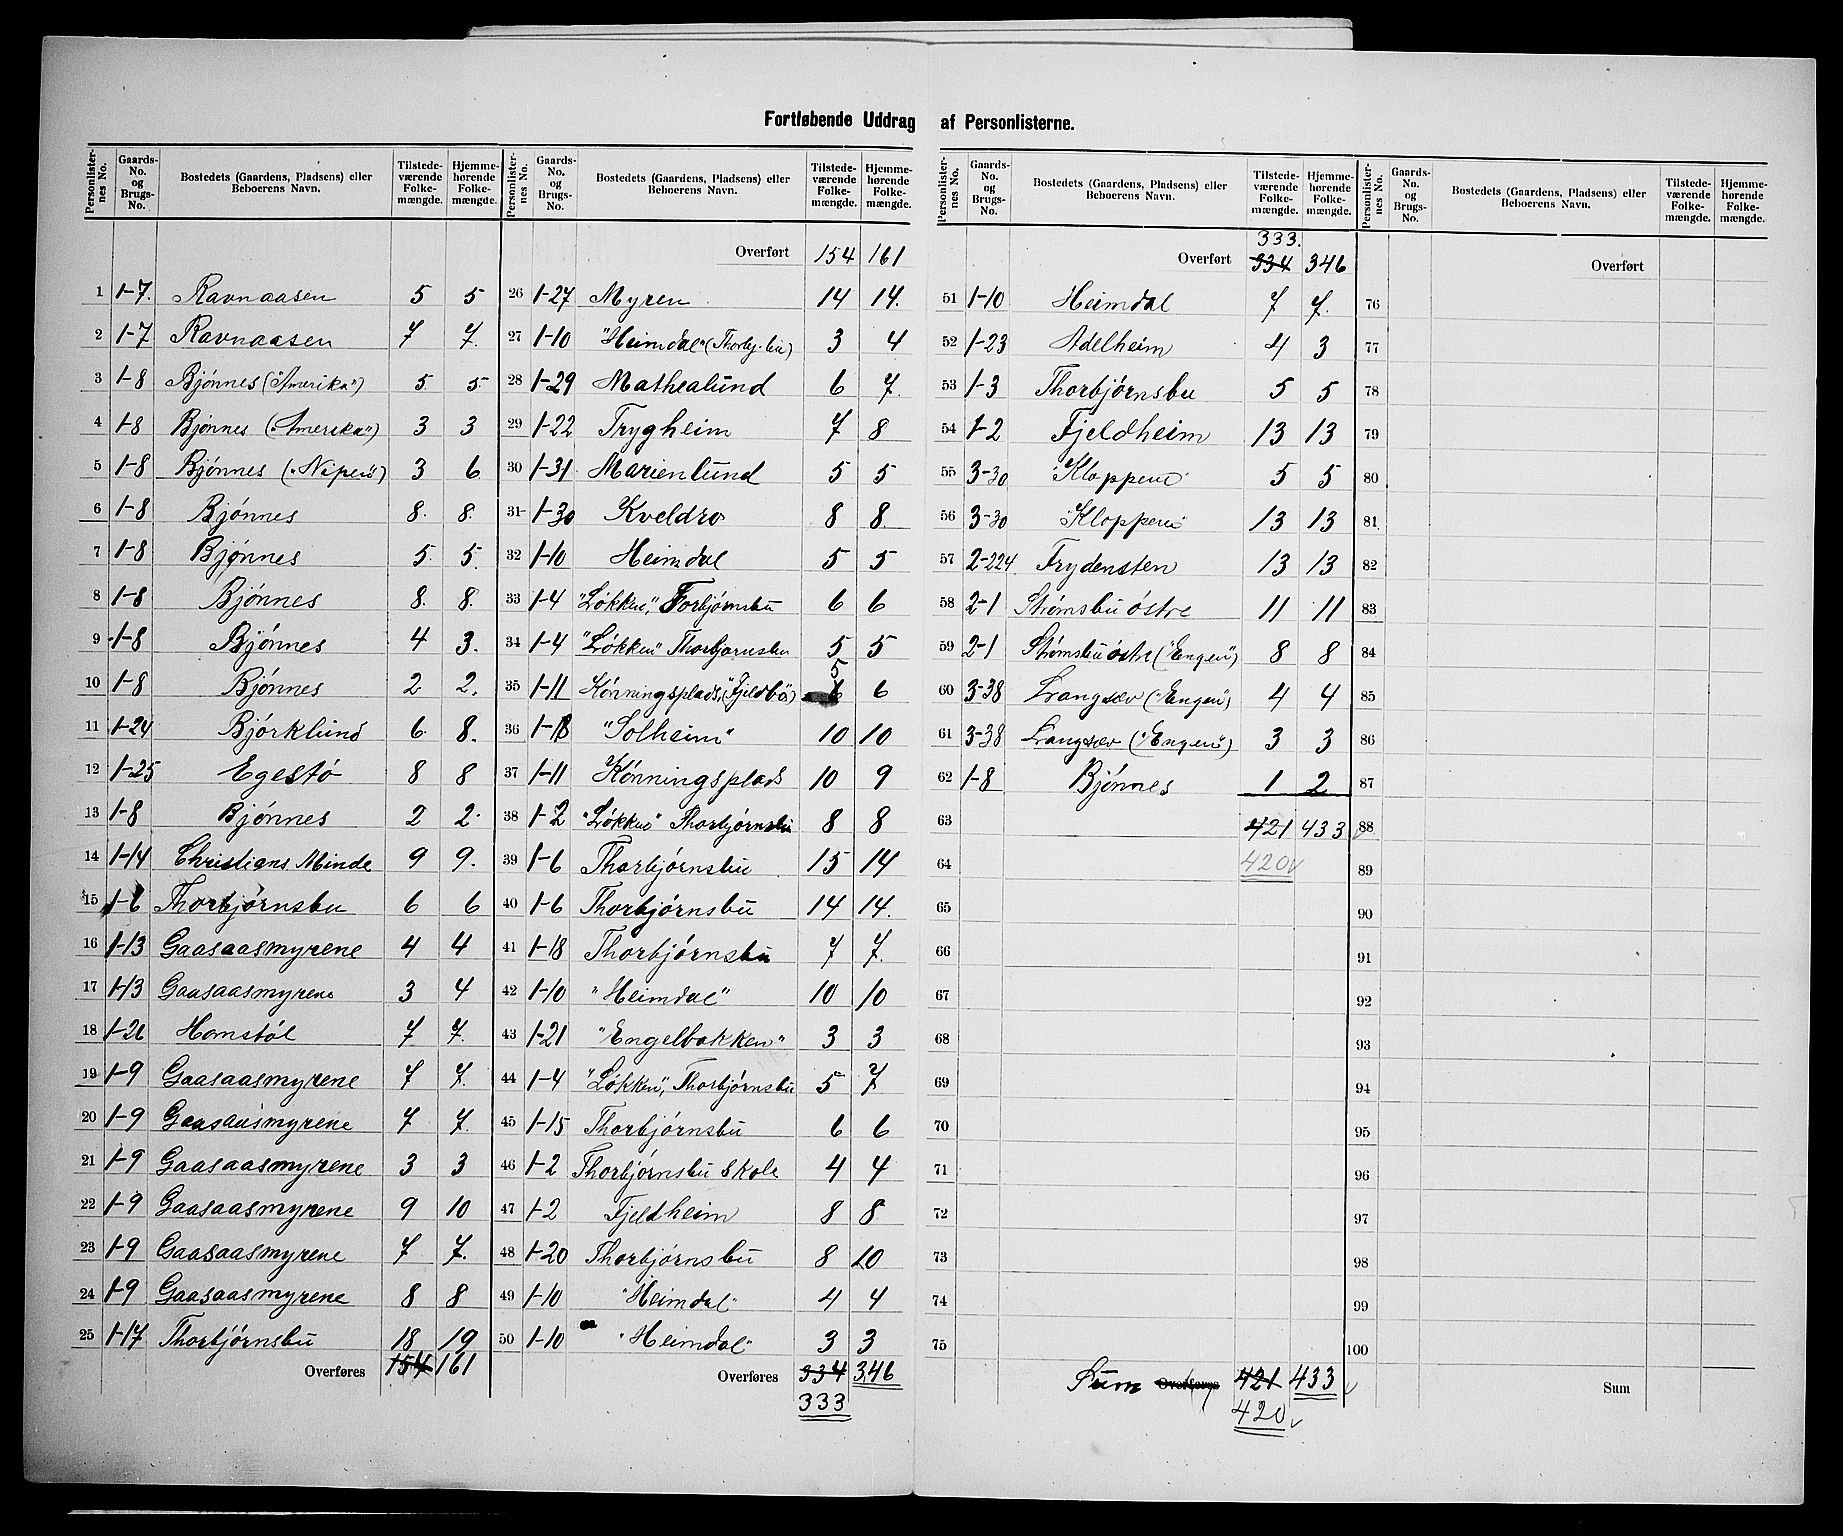 Fortløbende Uddrag af Personlisterne.
Personlister-nes No. | Gaards-No. og Brugs-No. | Bostedets (Gaardens, Pladsens) eller Beboerens Navn. | Tilstede-værende Folke-mængde. | Hjemme-hørende Folke-mængde.
1 1-7. Ravnaasen 5 5
2 1-7 Ravnaasen 7 7.
3 1-8 Bjønnes („Amerika") 5 5
4 1-8 Bjønnes („Amerika") 3 3
5 1-8 Bjønnes („Nipen") 3 6
6 1-8 Bjønnes 8. 8.
7 1-8 Bjønnes 5. 5.
8 1-8 Bjønnes 8. 8.
9 1-8 Bjønnes 4 3.
10 1-8 Bjønnes 2 2.
11 1-24 Bjørklund 6 8.
12 1-25 Egestø 8 8
13 1-8 Bjønnes 2 2.
14 1-14 Christians Minde 9 9.
15 1-6 Thorbjørnsbu 6 6
16 1-13 Gaasaasmyrene 4 4
17 1-13 Gaasaasmyrene 3 4
18 1-26 Homstøl 7 7.
19 1-9 Gaasaasmyrene 7 7.
20 1-9 Gaasaasmyrene 7 7.
21 1-9 Gaasaasmyrene 3 3
22 1-9 Gaasaasmyrene 9 10
23 1-9 Gaasaasmyrene 7 7.
24 1-9 Gaasaasmyrene 8 8
25 1-17 Thorbjørnsbu 18 19
Overføres 154 161
Personlister-nes No. | Gaards-No. og Brugs-No. | Bostedets (Gaardens, Pladsens) eller Beboerens Navn. | Tilstede-værende Folke-mængde. | Hjemme-hørende Folke-mængde.
Overført 154 161
26 1-27 Myren 14 14.
27 1-10 "Heimdal" (Thorbj.bu) 3 4
28 1-29 Mathealund 6 7.
29 1-22 Trygheim 7 8
30 1-31 Marienlund 5 5
31 1-30 Kveldro 8 8
32 1-10 Heimdal 5 5
33 1-4 "Løkken", Torbjørnsbu 6 6
34 1-4 "Løkken" Thorbjørnsbu 5 5
35 1-11 Kønningsplads, ("Fjeldbo") 6 5 6
36 1-18 "Solheim" 10 10
37 1-11 Kønningsplads 10 9
38 1-2 "Løkken" Thorbjørnsbu 8 8
39 1-6 Thorbjørnsbu 15 14
40 1-6 Thorbjørnsbu 14 14.
41 1-18 Thorbjørnsbu 7 7.
42 1-10 "Heimdal" 10 10
43 1-21 "Engelbakken" 3 3
44 1-4 "Løkken", Thorbjørnsbu 5 7
45 1-15 Thorbjørnsbu 6 6
46 1-2 Thorbjørnsbu Skole 4 4
47 1-2 Fjeldheim 8 8
48 1-20 Thorbjørnsbu 8 10
49 1-10 "Heimdal" 4 4
50 1-10 "Heimdal" 3 3
Overføres 334 346
333
Personlister-nes No. | Gaards-No. og Brugs-No. | Bostedets (Gaardens, Pladsens) eller Beboerens Navn. | Tilstede-værende Folke-mængde. | Hjemme-hørende Folke-mængde.
333.
Overført 334 346
51 1-10 Heimdal 7 7.
52 1-23 Adelheim 4 3
53 1-3 Thorbjørnsbu 5 5
54 1-2 Fjeldheim 13 13
55 3-30 "Kloppene" 5 5
56 3-30 "Kloppene" 13 13
57 2-224 Frydensten 13 13
58 2-1 Strømsbu østre 11 11
59 2-1 Strømsbu østre ("Engen") 8 8
60 3-38 Langsæv ("Engen") 4 4
61 3-38 Langsæv ("Engen") 3 3
62 1-8 Bjønnes 1 2
63 421 433 v
64 420 v
65
66
67
68
69
70
71
72
73
74
75
Sum Overføres 421 433 v
420 v
Personlister-nes No. | Gaards-No. og Brugs-No. | Bostedets (Gaardens, Pladsens) eller Beboerens Navn. | Tilstede-værende Folke-mængde. | Hjemme-hørende Folke-mængde.
Overført
76
77
78
79
80
81
82
83
84
85
86
87
88
89
90
91
92
93
94
95
96
97
98
99
100
Sum